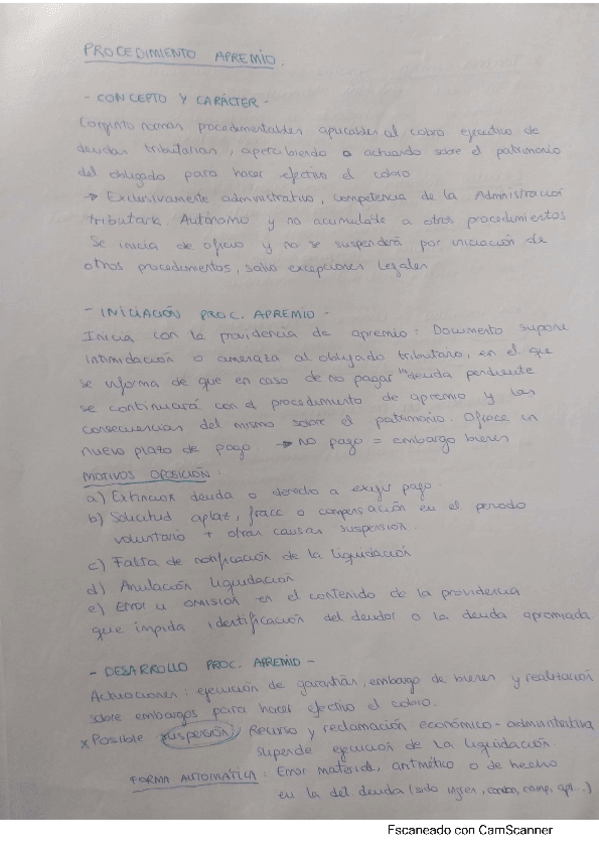 PROCEDIMIENTO APREMIO.
- CONCEPTO Y CARÁCTER -
Conjunto normas procedimentables aplicables al cobro ejecutivo de
deudas tributarias, apercibiendo o actuando sobre el patrimonio
del obligado para hacer efectivo el cobro
→ Exclusivamente administrativo, competencia de la Administración
tributaria. Autónomo y no acumulable a otros procedimientos
Se inicia de oficio y no se suspenderá por iniciación de
otros procedimientos, salvo excepciones legales
- INICIACIÓN PROC. APREMIO -
Inicia con la providencia de apremio: Documento supone
intimidación o amenaza al obligado tributario, en el que
se informa de que en caso de no pagar deuda pendiente
se continuará con el procedimiento de apremio y las
consecuencias del mismo sobre el patrimonio. Ofrece un
nuevo plazo de pago. → NO pago = embargo bienes
MOTIVOS OPOSICIÓN:
a) Extinción deuda o derecho a exigir pago.
b) Solicitud aplaz, fracc o compensación en el periodo
voluntario + otras causas suspensión.
c) Falta de notificación de la liquidación
d) Anulación liquidación
e) Error u omisión en el contenido de la providencia
que impida identificación del deudor o la deuda apremiada
- DESARROLLO PROC. APREMIO -
Actuaciones: ejecución de garantías, embargo de bienes y realización
sobre embargos para hacer efectivo el cobro.
x Posible suspensión Recurso y reclamación económico-administrativa
supende ejecución de la liquidación.
FORMA AUTOMÁTICA: Error material, aritmético o de hecho
en la det. deuda (sido ingres, condon, comp, apl...)
Escaneado con CamScanner